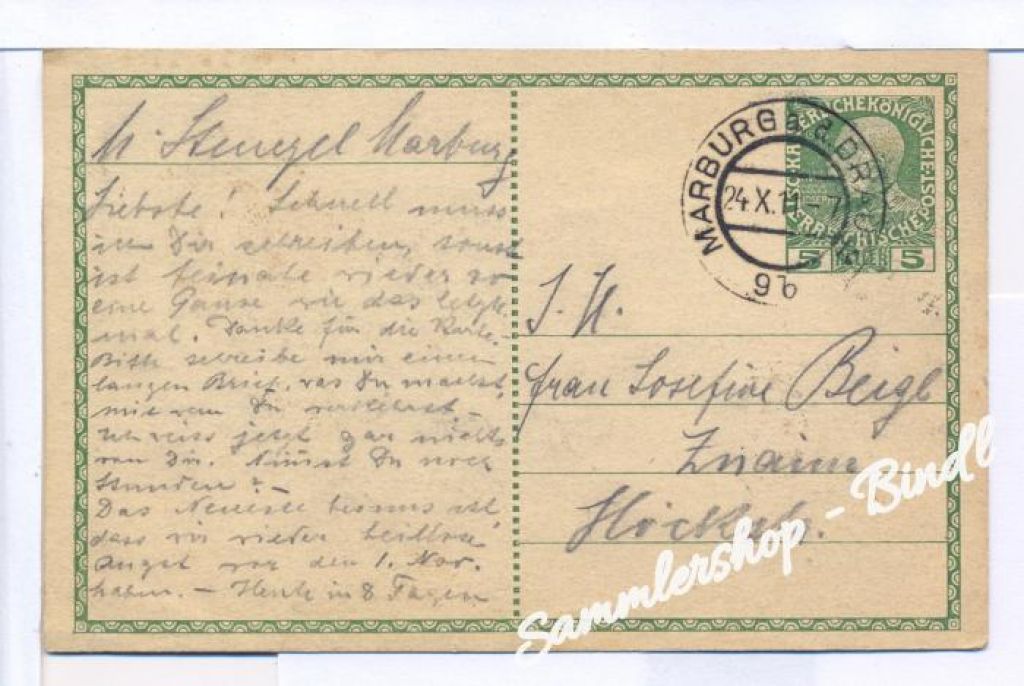 M. Stenegel Marburg
Liebste! Schnell muss
ich Dir schreiben, sonst
ist beinahe wieder so
eine Pause wie das letzte
mal. Danke für die Karte.
Bitte schreibe mir einen
langen Brief, was Du machst,
mit wem Du verkehrst –
ich weiss jetzt gar nichts
von Dir. Nimmst Du noch
Stunden? –
Das Neueste bei uns ist,
dass wir wieder
Angst vor den 1. Nov.
haben. – Heute in 8 Tagen
MARBURG a. d. DRAU
24.X.11
9b
KAISERKÖNIGLICHE ÖSTERREICHISCHE
5 5
S. H.
Frau Josefine Beigl
Znaim
Sammlershop - Bindl